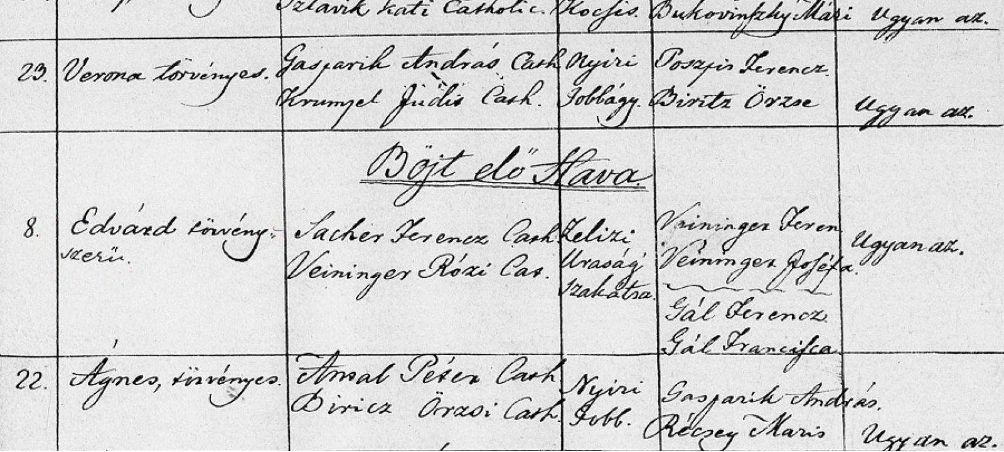 Szlavik Kati Catholic. Kocsis. Bukovinszky Mári Ugyan az.
23. Verona törvényes. Gasparik András Cath Nyiri Poszpis Ferencz.
Krumpel Judis Cath. Jobbágy. Biritz Örzse Ugyan az.
Böjt elő Hava.
8. Edvárd törvény- Sacher Ferencz Cath Zelizi Veininger Feren
szerü. Veininger Rózi Cat. Uraság Veininger Joséfa. Ugyan az.
Szakátsa.
Gál Ferencz
Gál Francisca
22. Ágnes, törvényes. Antal Péter Cath Nyiri Gasparik András.
Biricz Örzsi Cath. Jobb. Récsey Maris Ugyan az.